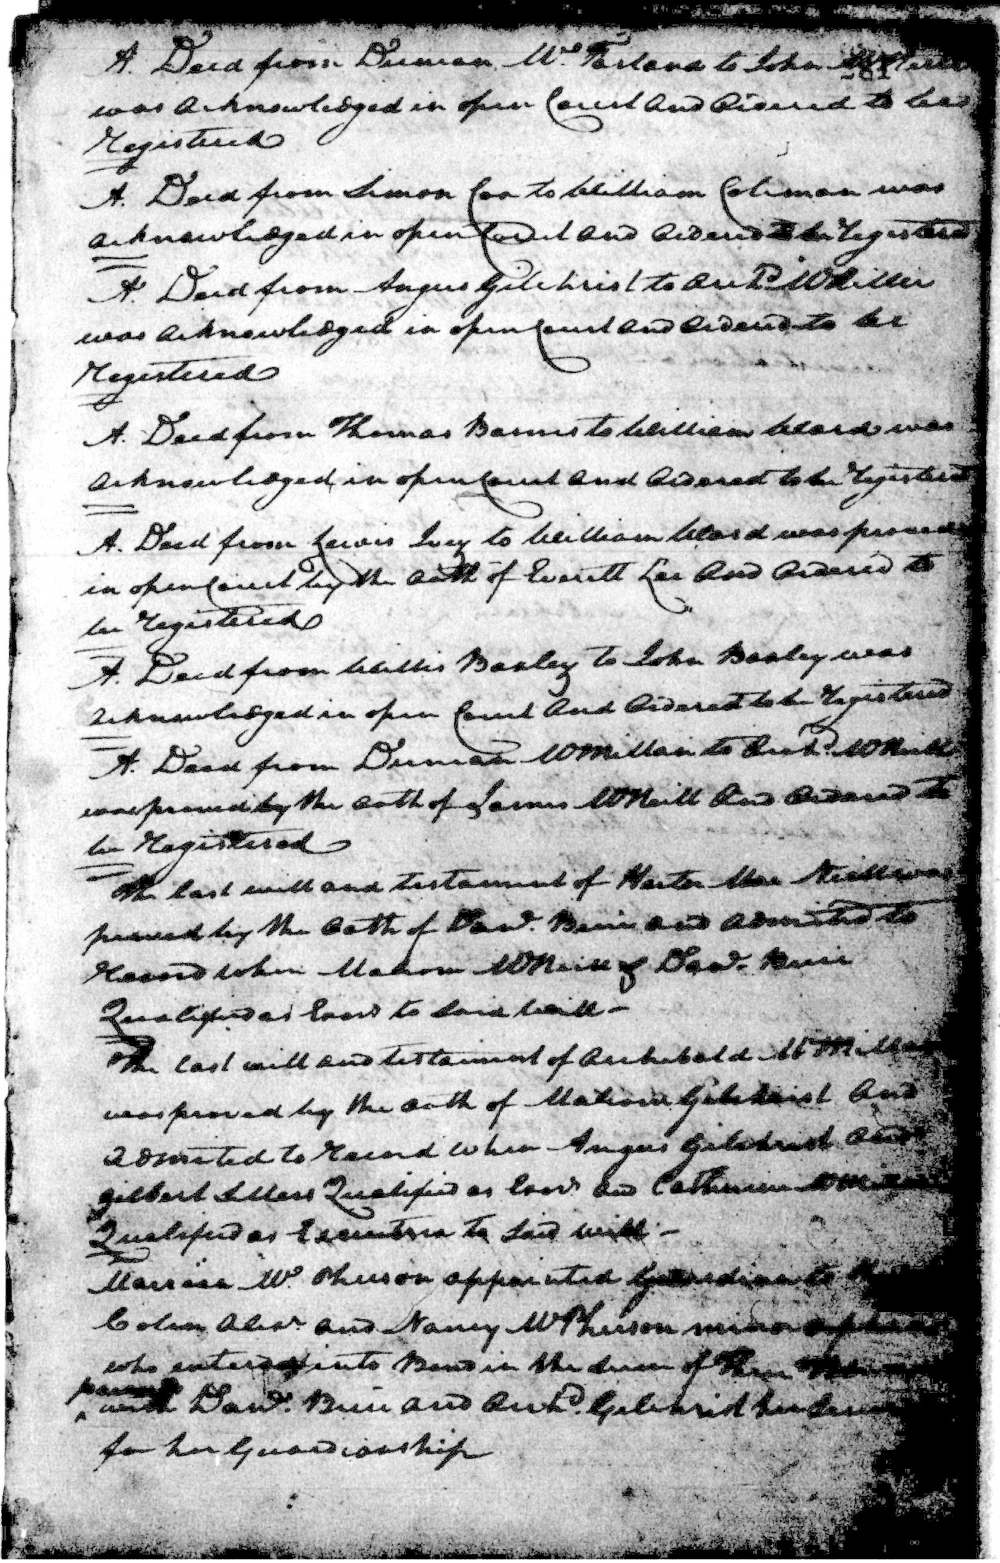 A. Deed from Duncan Mc. Farland to John
was acknowledged in open Court and Ordered to be
Registered
A. Deed from Simon Cox to William Coleman was
acknowledged in open Court and Ordered to be Registered
A. Deed from Angus Gilchrist to Archd. McMillan
was acknowledged in open Court and Ordered to be
Registered
A. Deed from Thomas Barnes to William Ward was
acknowledged in open Court and Ordered to be Registered
A. Deed from Lewis Ivey to William Ward was proved
in open Court by the oath of Everett Lee And Ordered to
be Registered
A. Deed from Willis Baxley to John Baxley was
acknowledged in open Court And Ordered to be Registered
A. Deed from Duncan McMillan to Archd. McNeill
was proved by the oath of James McNeill And Ordered to
be Registered
The last will and testament of Hector Mac Neill was
proved by the oath of Danl. Buie and admited to
Record when McNeill & Danl. Buie
Qualified as Exors to Said Will -
The last will and testament of Archibald McMillan
was proved by the oath of Gilchrist And
admited to Record when Angus Gilchrist and
Gilbert Sellars Qualified as Exors and Catherine McMillan
Qualified as Executrix to Said will -
Mc. Pherson appointed Guardian to
Colin Alexr. and Nancy McPherson minor orphans
who entered into Bond in the Sum of
with Danl. Buie and Archd. Gilchrist her
for her Guardianship